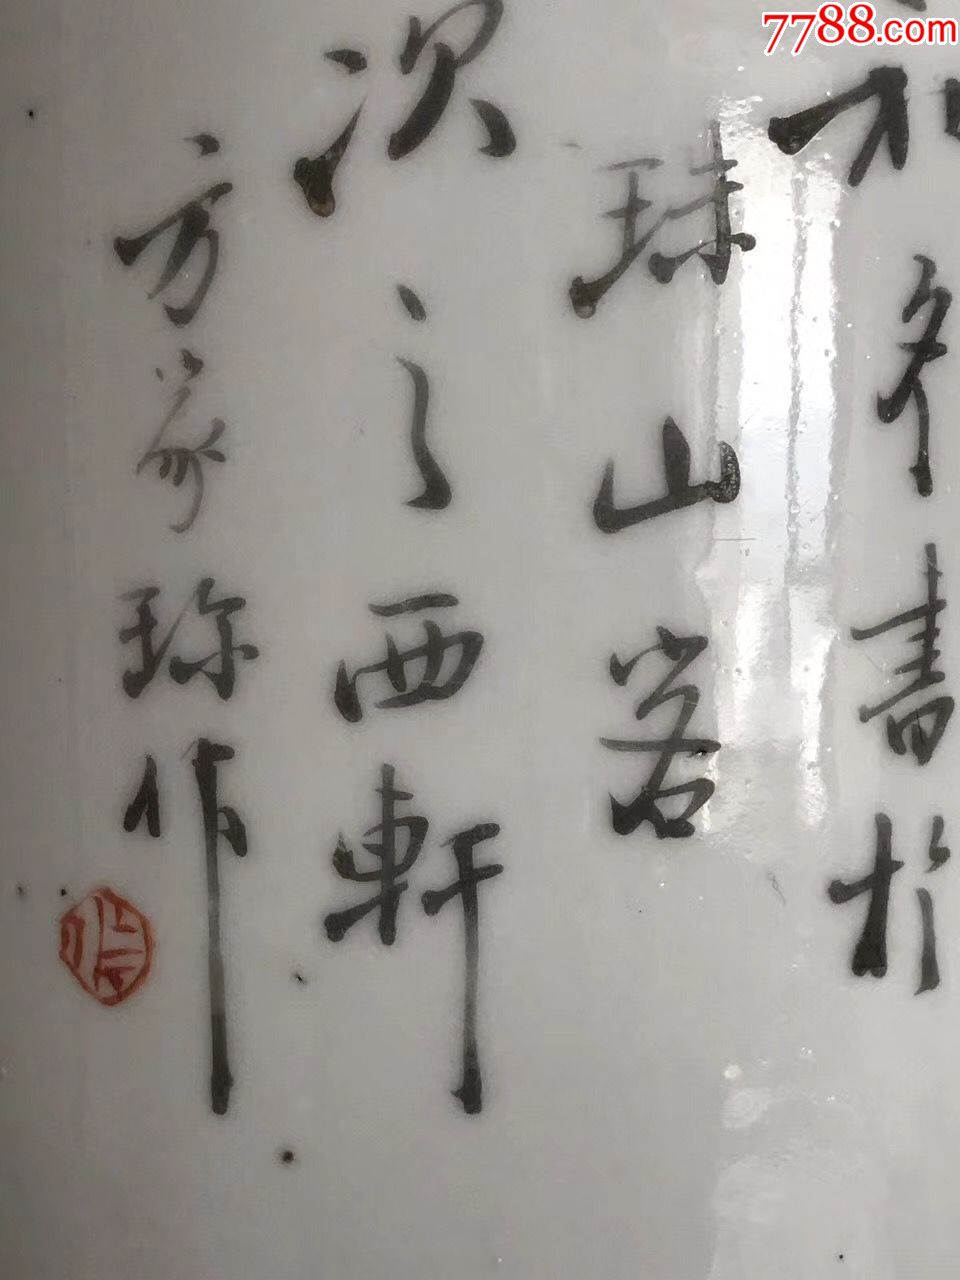 7788.com
冬書於
珠山客
次之西軒
方家珍作